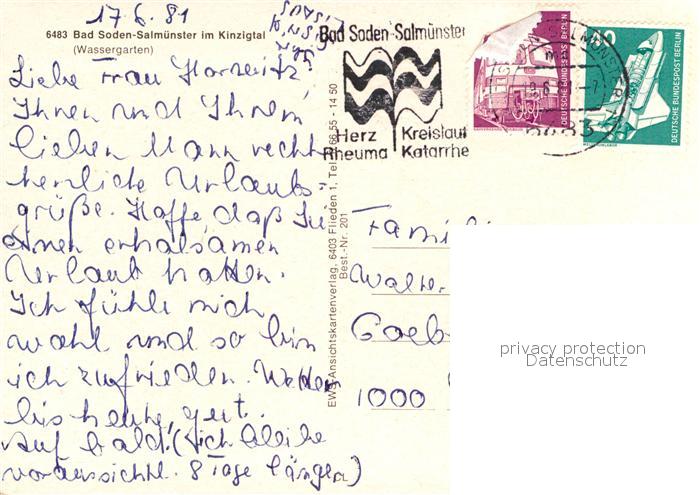 17.6.81
6483 Bad Soden-Salmünster im Kinzigtal
(Wassergarten)
Liebe Frau
Ihnen und Ihrem
lieben Mann recht
herzliche Urlaubs-
grüße. Hoffe, daß Sie
einen erholsamen
Urlaub hatten.
Ich fühle mich
wohl und so bin
ich zufrieden. Wetter
bis heute, gut.
Auf bald. (ich bleibe
voraussichtl. 8 Tage länger)
EWG Ansichtskartenverlag, 6403 Flieden 1, Tel. 0 66 55 - 14 50
Best.-Nr. 201
Bad Soden-Salmünster
Herz Kreislauf
Rheuma Katarrhe
DEUTSCHE BUNDESPOST BERLIN
60
DEUTSCHE BUNDESPOST BERLIN
WELTRAUMLABOR
Familie
Walter
Goeb
1000
privacy protection
Datenschutz